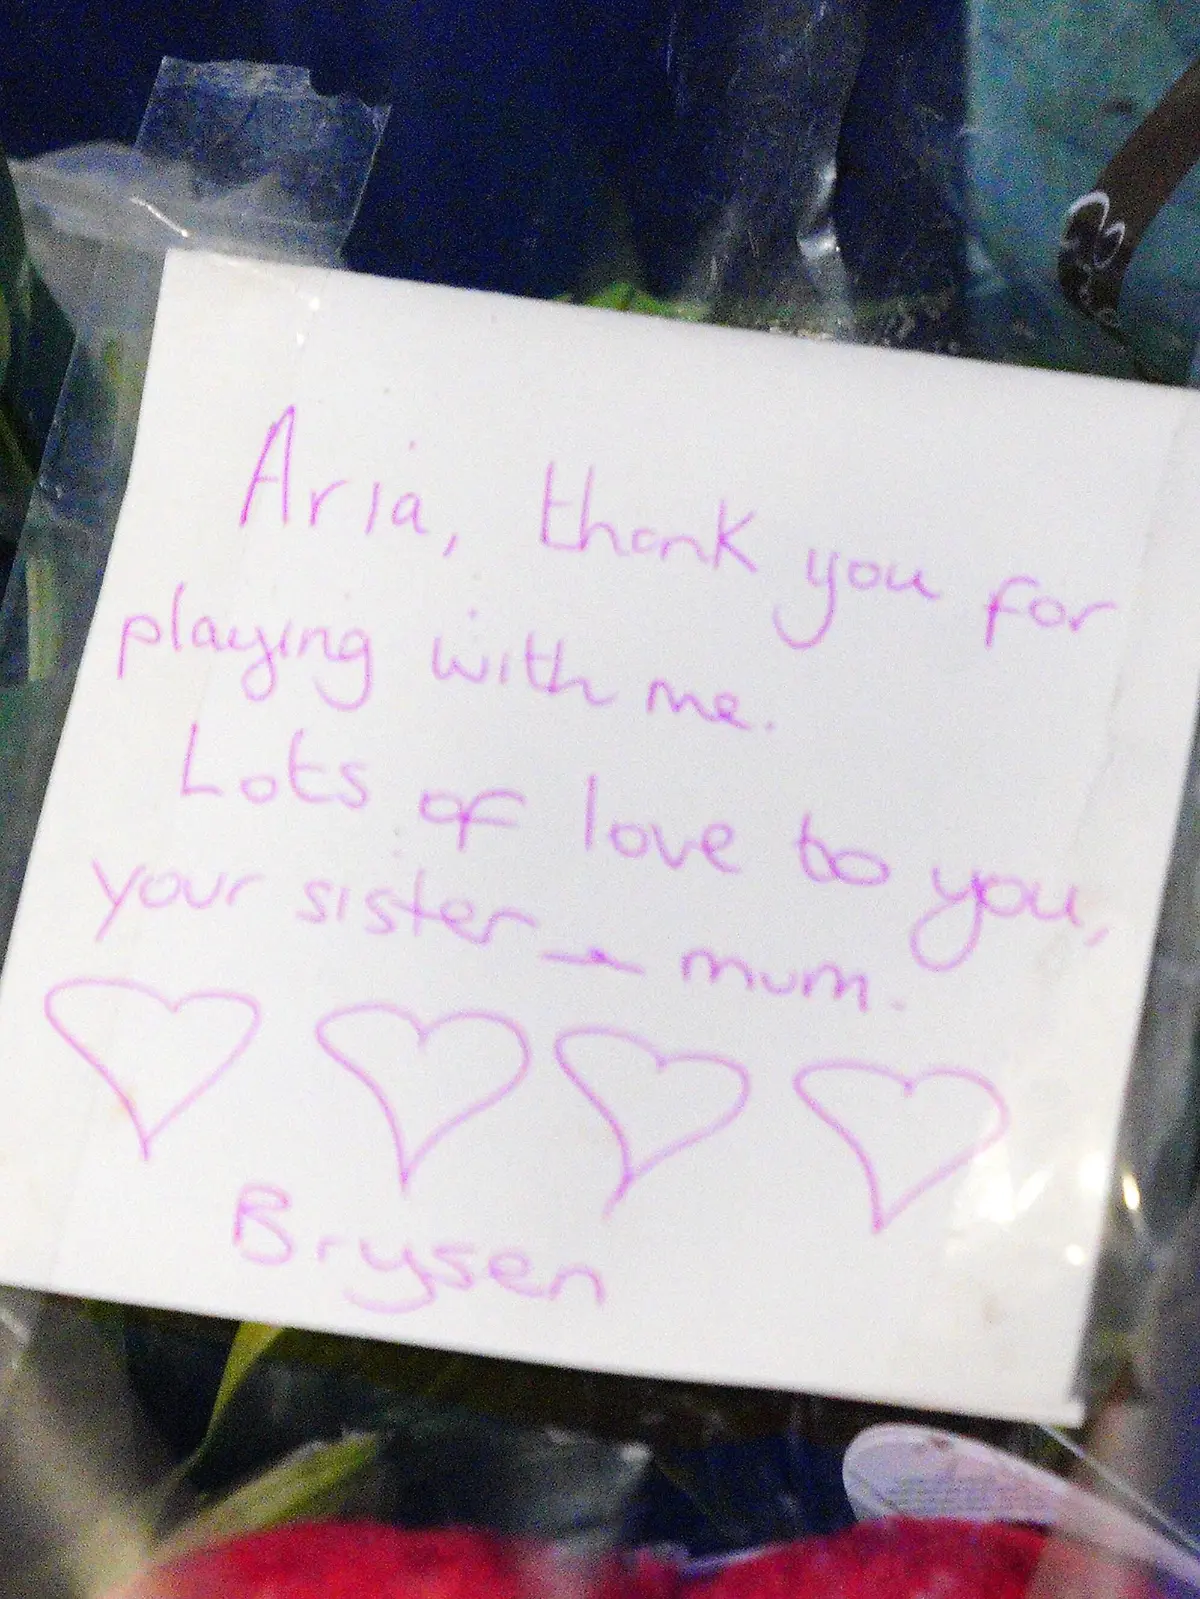 Aria, thank you for
playing with me.
Lots of love to you,
your sister & mum.
Brysen